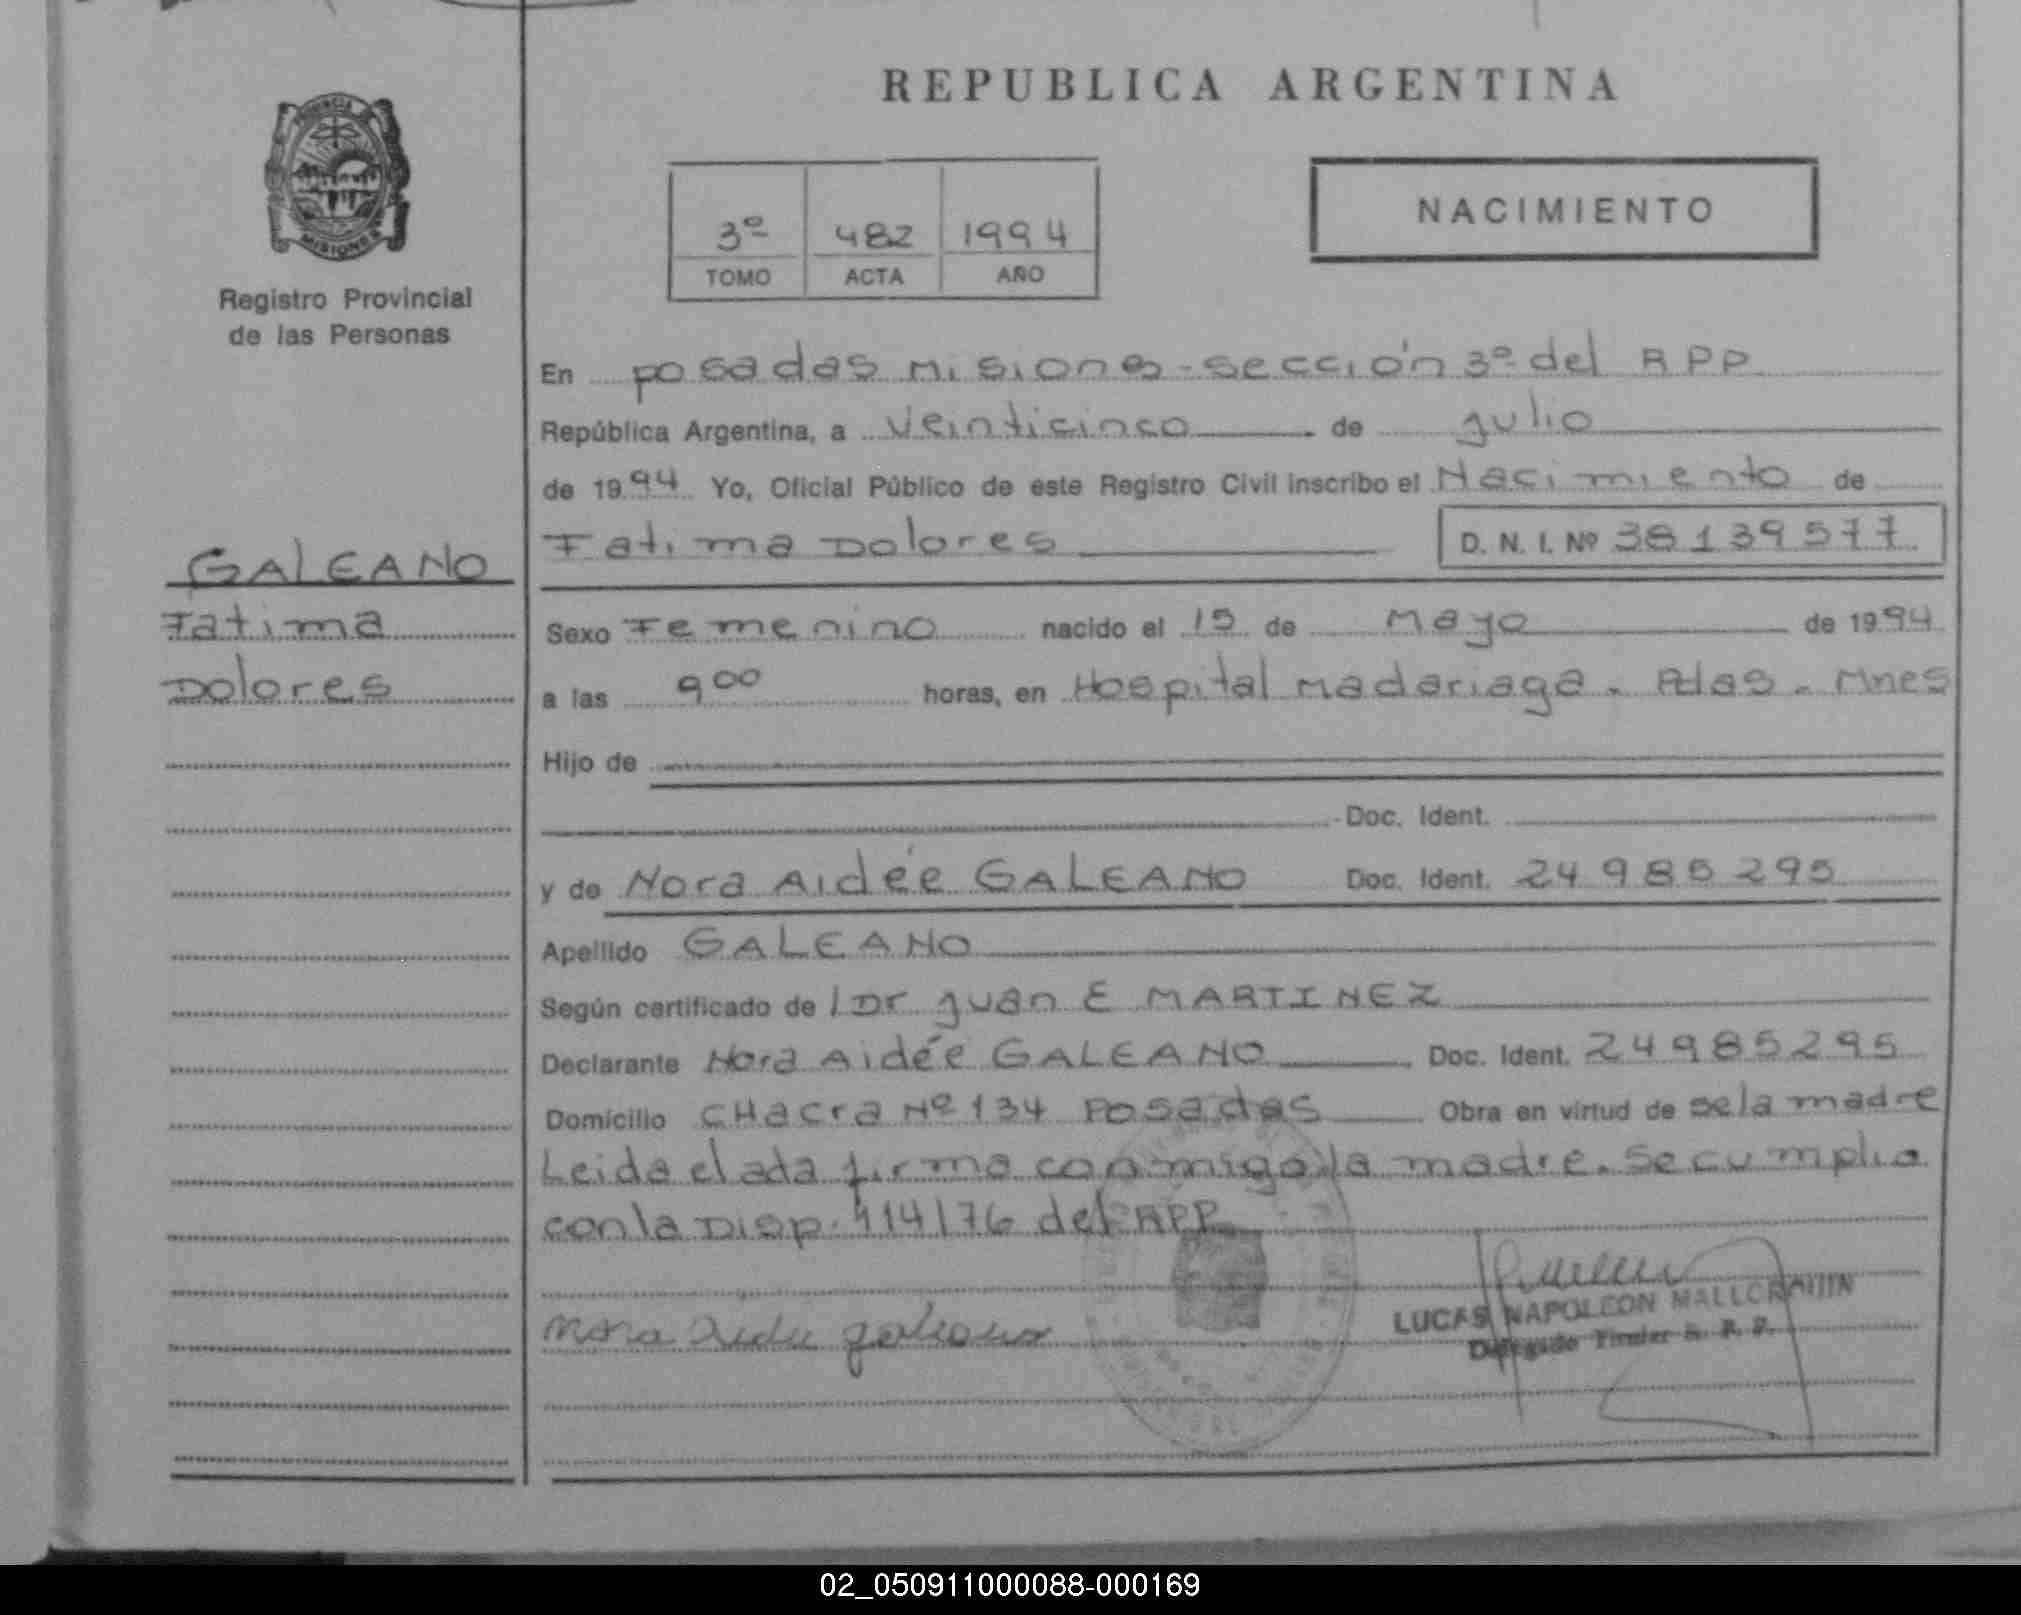 REPUBLICA ARGENTINA
PROVINCIA
MISIONES
Registro Provincial
de las Personas
3º 482 1994
TOMO ACTA AÑO
NACIMIENTO
En posadas Misiones - sección 3º del RPP
República Argentina, a veinticinco de julio
de 1994 Yo, Oficial Público de este Registro Civil inscribo el Nacimiento de
Fatima Dolores D. N. I. Nº 38139577
GALEANO
Fatima
Dolores
Sexo Femenino nacido el 15 de Mayo de 1994
a las 9 00 horas, en Hospital Madariaga. Pdas. Mnes
Hijo de
Doc. Ident.
y de Nora Aidée GALEANO Doc. Ident. 24 985 295
Apellido GALEANO
Según certificado de / Dr Juan E MARTINEZ
Declarante Nora Aidée GALEANO Doc. Ident. 24985295
Domicilio CHacra Nº 134 Posadas Obra en virtud de se la madre
Leida el acta firma conmigo la madre. Se cumplio
con la Disp. 114/76 del RPP
Nora Aidee galeano
LUCAS NAPOLEON
Delegado Titular R. P. P.
02_050911000088-000169